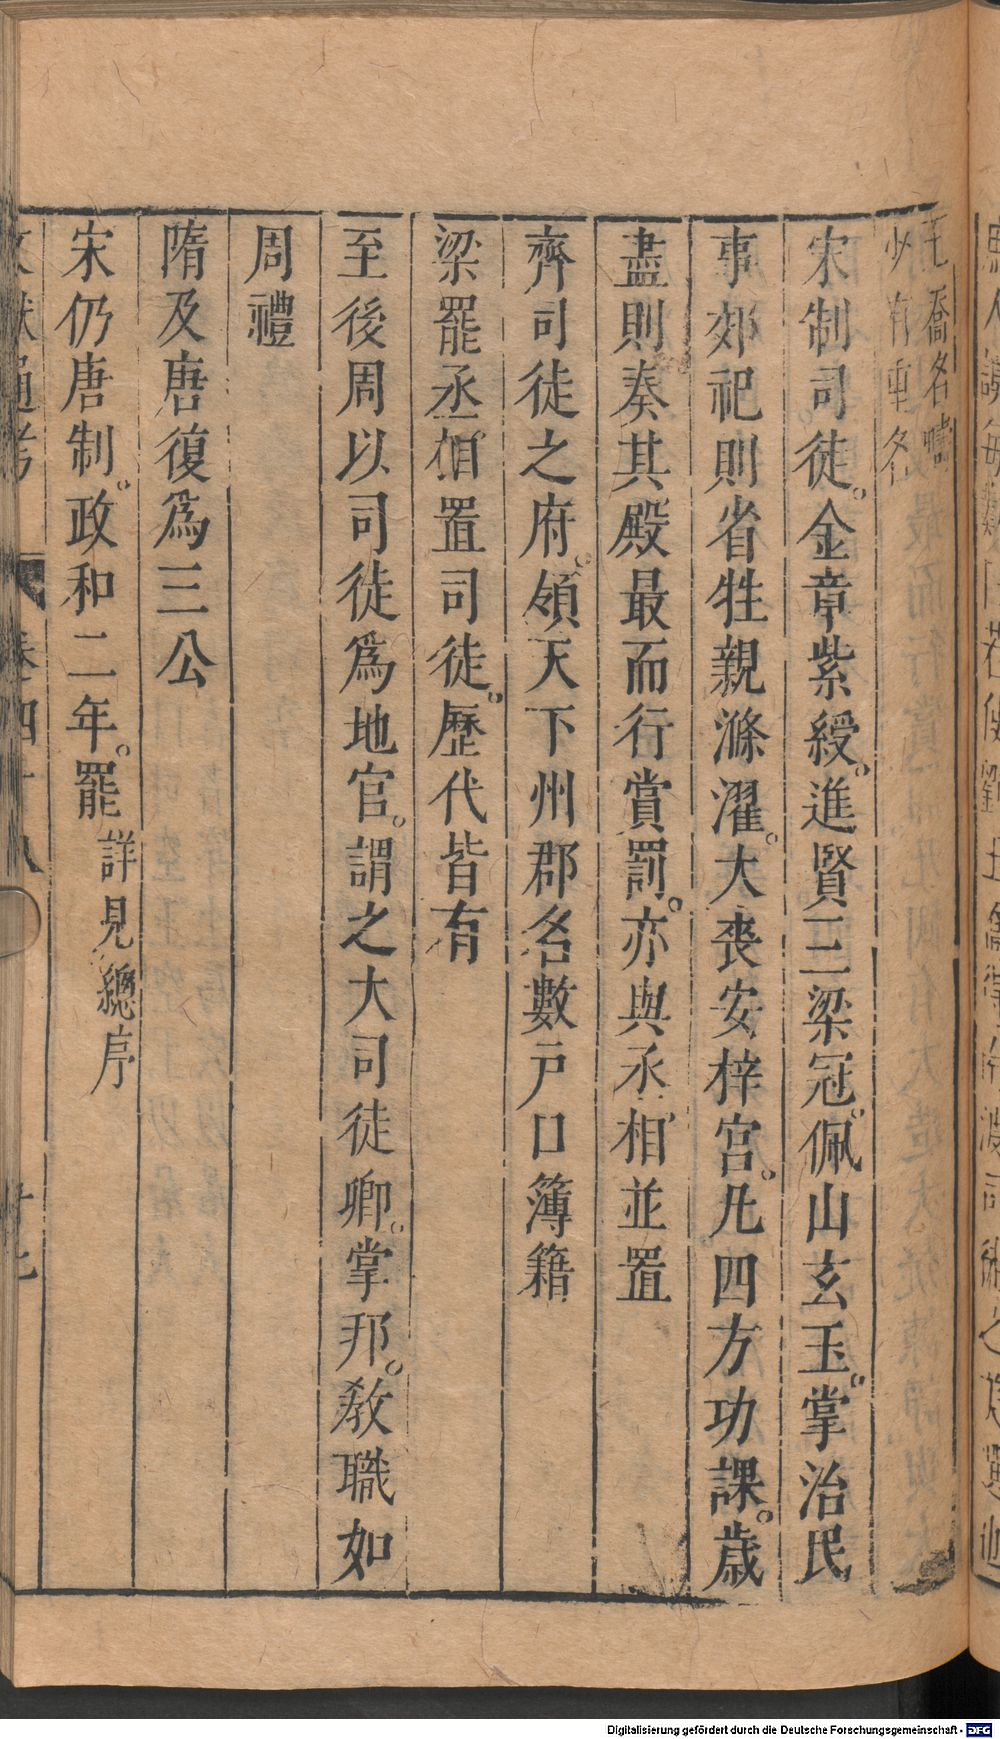 王喬名嘯
少有重名
宋制司徒。金章紫綬。進賢三梁冠。佩山玄玉。掌治民
事郊祀則省牲親滌濯。大喪安梓宮。凡四方功課。歲
盡則奏其殿最而行賞罰。亦與丞相並置
齊司徒之府。領天下州郡名數戸口簿籍
梁罷丞相置司徒。歷代皆有
至後周以司徒爲地官。謂之大司徒卿。掌邦。敎職如
周禮
隋及唐復爲三公
宋仍唐制。政和二年。罷詳見總序
文獻通考 卷四十八 廿七
Digitalisierung gefördert durch die Deutsche Forschungsgemeinschaft - DFG